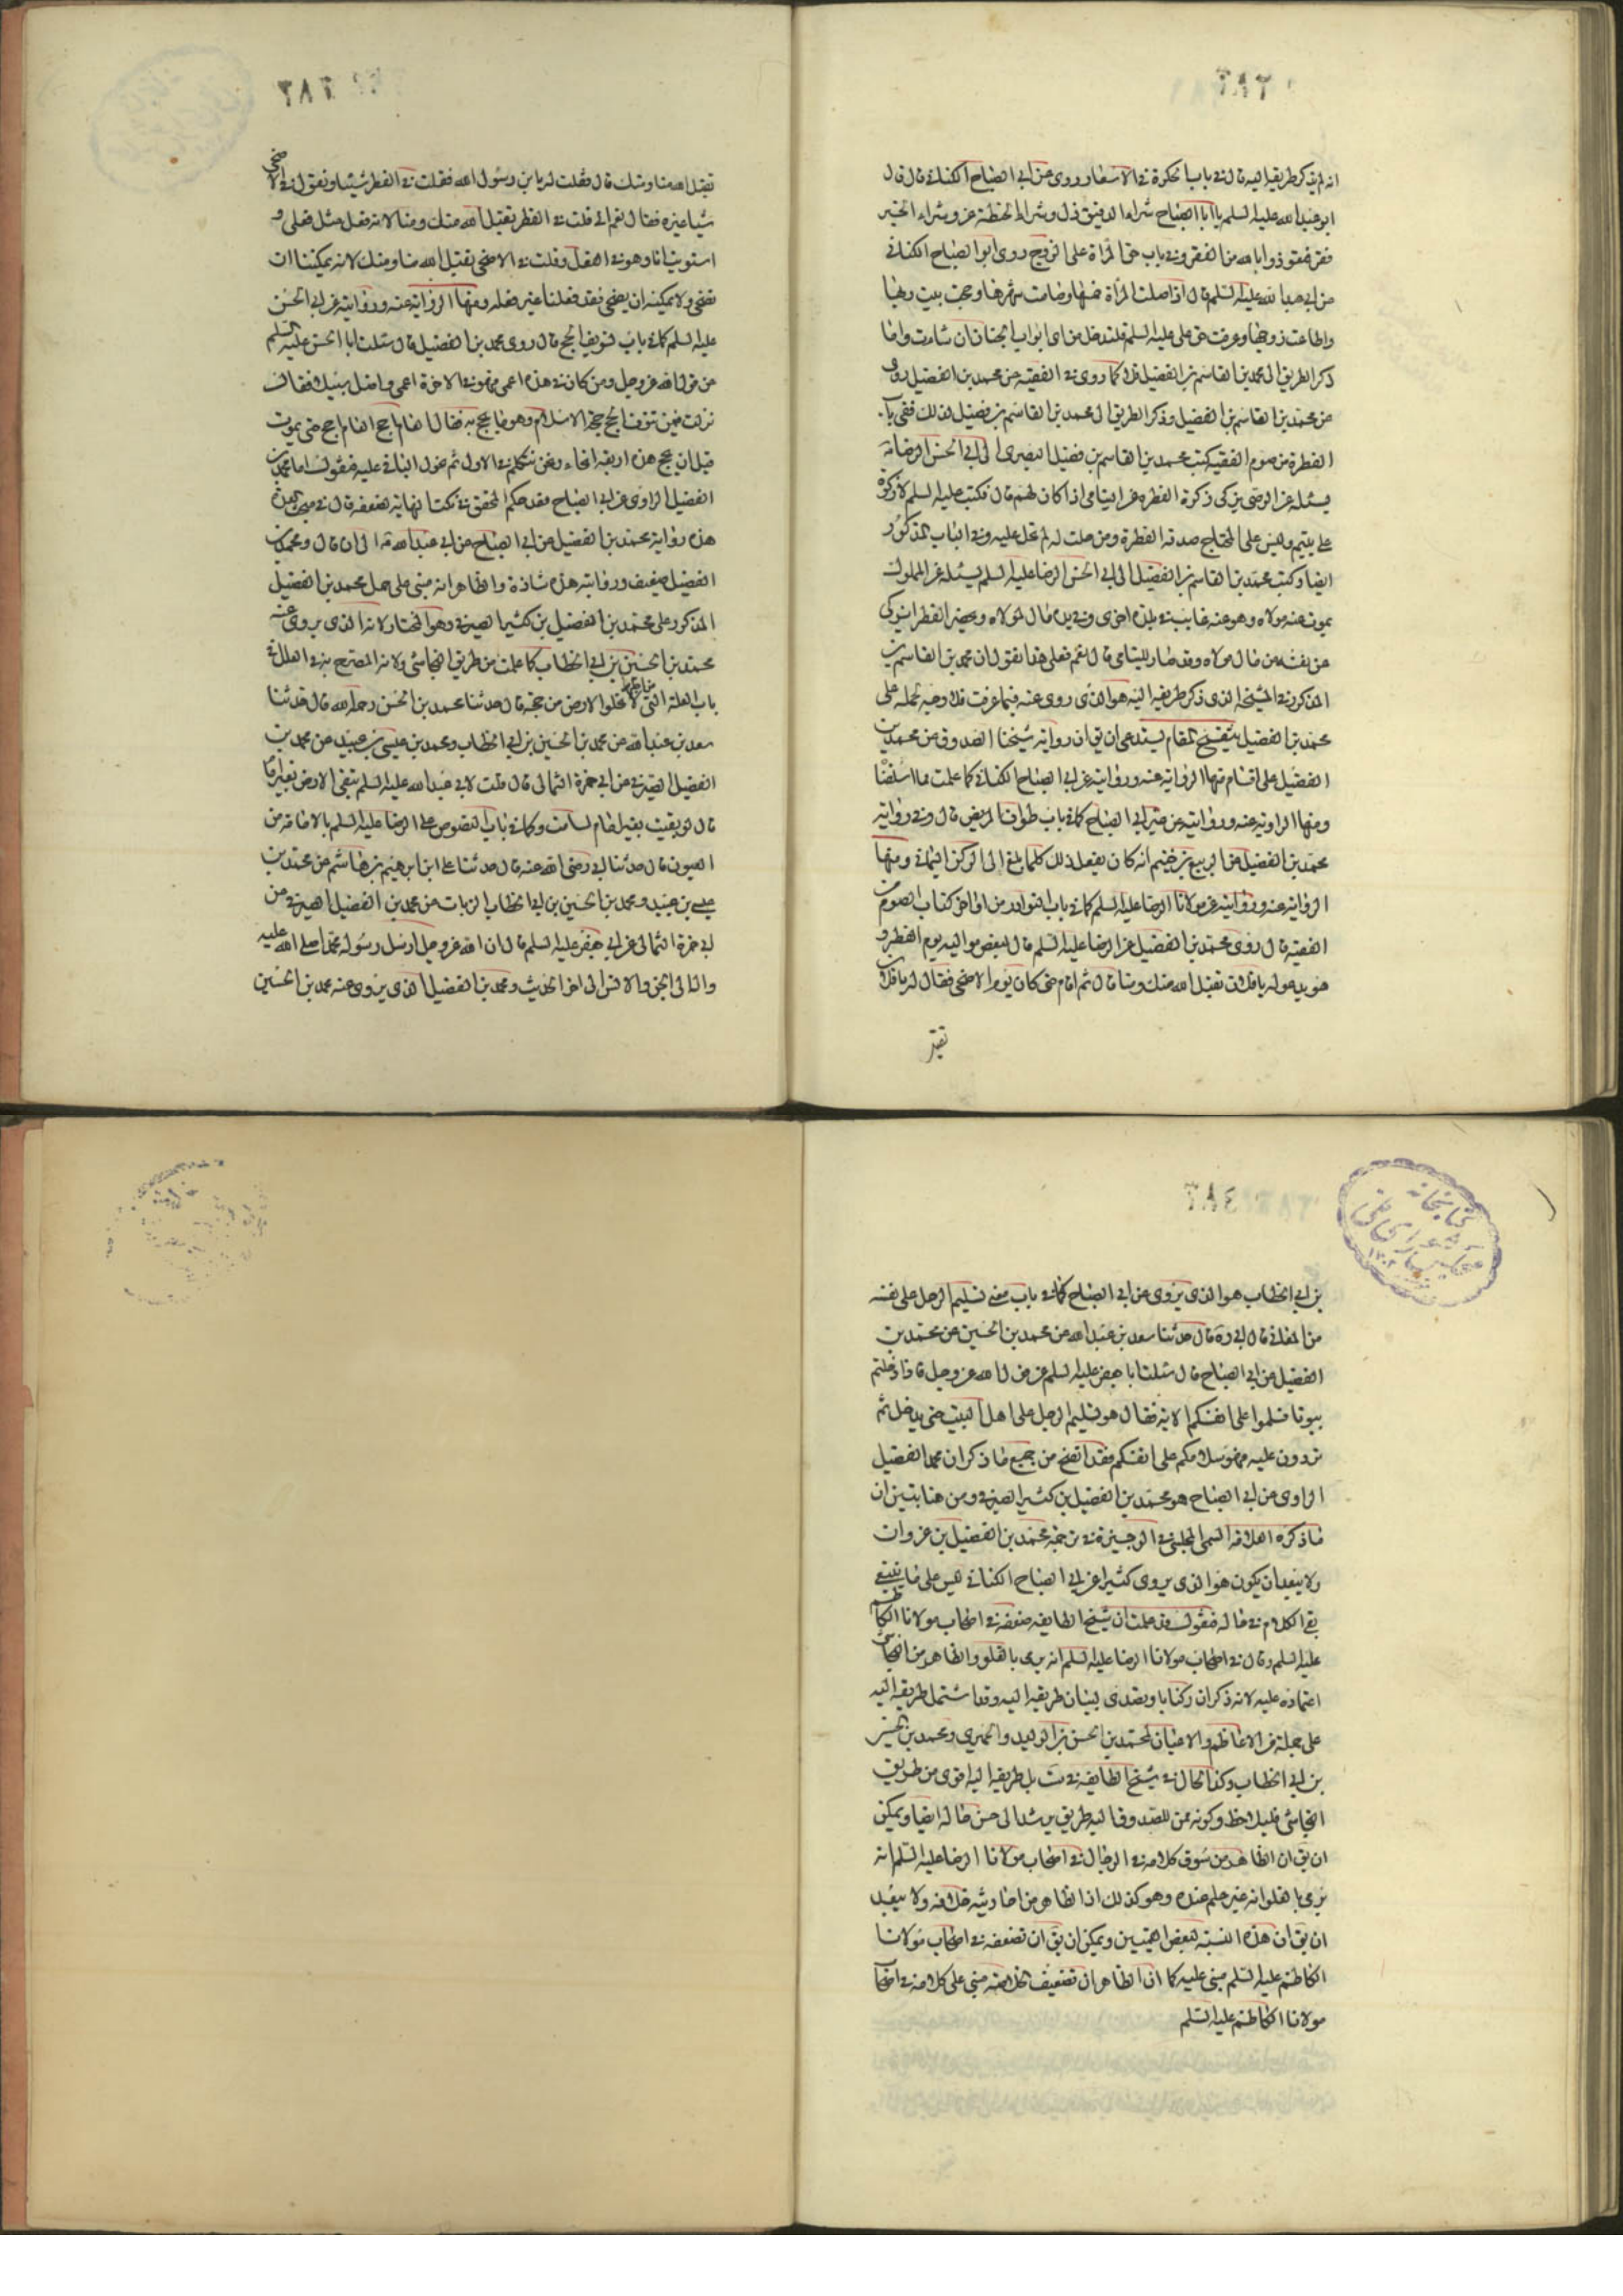 ٣٨٢
انه لم يذكر طريقه اليه قال في باب ما يكره في الاسفار وروى عن ابى الصباح الكنانى قال قال
ابو عبدالله عليه السلم يا ابا الصباح شراء الدقيق ذل وشراء الحنطة عز وشراء الخبز
فقر فنعوذ بالله من الفقر وفى باب حق المراة على الزوج روى ابو الصباح الكنانى
عن ابى عبدالله عليه السلم قال اذا صلت المراة خمسها وصامت شهرها وحجت بيت ربها
واطاعت زوجها وعرفت حق على عليه السلم فلتدخل من اى ابواب الجنان شاءت واما
ذكر الطريق الى محمد بن القاسم بن الفضيل فلانه كما روى في الفقيه عن محمد بن الفضيل روى
عن محمد بن القاسم بن الفضيل وذكر الطريق الى محمد بن القاسم بن فضيل لذلك ففى باب
الفطرة من صوم الفقيه كتب محمد بن القاسم بن فضيل البصرى الى ابى الحسن الرضا
يسئله عن الوصى يزكى زكوة الفطرة عن اليتامى اذا كان لهم مال فكتب عليه السلم لا زكوة
على يتيم وليس على المحتاج صدقه الفطرة ومن حلت له لم تحل عليه وفى الباب المذكور
ايضا وكتب محمد بن القاسم بن الفضيل الى ابى الحسن الرضا عليه السلم يسئله عن المملوك
يموت عنه مولاه وهو عنه غايب في بلدة اخرى وفى يده مال لمولاه ويحضر الفطر ايزكى
عن نفسه من مال مولاه وقد صار لليتامى قال نعم فعلى هذا نقول ان محمد بن القاسم
المذكور في المشيخة الذى ذكر طريقه اليه هو الذى روى عنه فيما عرفت فلا وجه لحمله على
محمد بن الفضيل تنقيح المقام يستدعى ان يق ان رواية شيخنا الصدوق عن محمد بن
الفضيل على اقسام منها الرواية عنه وروايته عن ابى الصباح الكنانى كما علمت مما اسلفنا
ومنها الرواية عنه وروايته عن غير ابى الصباح كما في باب طواف المريض قال وفى رواية
محمد بن الفضيل عن الربيع بن خثيم انه كان يفعل ذلك كلما بلغ الى الركن اليمانى ومنها
الرواية عنه وروايته عن مولانا الرضا عليه السلم كما في باب النوادر من اواخر كتاب الصوم من
الفقيه قال روى محمد بن الفضيل عن الرضا عليه السلم قال لبعض مواليه يوم الفطر و
هو يدعو له يا فلان تقبل الله منك ومنا قال ثم اقام حتى كان يوم الاضحى فقال له يا فلان
تقبل
٣٨٣
تقبل الله منا ومنك قال فقلت له يا بن رسول الله فقلت في الفطر شيئا وتقول في الاضحى
شيئا غيره فقال نعم انى قلت في الفطر تقبل الله منك ومنا لانه فعل مثل فعلى و
استويت انا وهو في الفعل وقلت في الاضحى تقبل الله منا ومنك لانه يمكننا ان
نضحى ولا يمكنه ان يضحى فقد فعلنا غير فعله ومنها الرواية عنه وروايته عن ابى الحسن
عليه السلم كما في باب تسويف الحج قال روى محمد بن الفضيل قال سئلت ابا الحسن عليه السلم
عن قول الله عز وجل ومن كان في هذه اعمى فهو في الاخرة اعمى واضل سبيلا فقال
نزلت فيمن سوف الحج حجة الاسلام وهو ما يحج به فقال العام احج العام احج حتى يموت
قبل ان يحج هذه اربعة انحاء ونحن نتكلم في الاول ثم نحول الباقى عليه فنقول اما محمد بن
الفضيل الراوى عن ابى الصباح فقد حكم المحقق في نكت النهاية بضعفه قال في
هذه رواية محمد بن الفضيل عن ابى الصباح عن ابى عبدالله الى ان قال ومحمد بن
الفضيل ضعيف وروايته هذه شاذة والظاهر انه مبنى على حمل محمد بن الفضيل
المذكور على محمد بن الفضيل بن كثير الصيرفى وهو المختار لانه الذى يروى عنه
محمد بن الحسين بن ابى الخطاب كما علمت من طريق النجاشى ولانه المصرح به في العلل في
باب العلة التى من اجلها لا تخلوا الارض من حجة قال حدثنا محمد بن الحسن رحمه الله قال حدثنا
سعد بن عبدالله عن محمد بن الحسين بن ابى الخطاب ومحمد بن عيسى بن عبيد عن محمد بن
الفضيل الصيرفى عن ابى حمزة الثمالى قال قلت لابى عبدالله عليه السلم تبقى الارض بغير امام
قال لو بقيت بغير امام لساخت وكما في باب النصوص على الرضا عليه السلم بالامامة من
العيون قال حدثنا ابى رضى الله عنه قال حدثنا على ابن ابرهيم بن هاشم عن محمد بن
عيسى بن عبيد ومحمد بن الحسين بن ابى الخطاب الزيات عن محمد بن الفضيل الصيرفى عن
ابى حمزة الثمالى عن ابى جعفر عليه السلم قال ان الله عز وجل ارسل رسوله محمدا صلى الله عليه
واله الى الجن والانس الى اخر الحديث ومحمد بن الفضيل الذى يروى عنه محمد بن الحسين
٣٨٤
كتابخانه
مجلس شوراى ملى
بن ابى الخطاب هو الذى يروى عن ابى الصباح كما في باب معنى تسليم الرجل على نفسه
من المعانى قال ابى ره قال حدثنا سعد بن عبدالله عن محمد بن الحسين عن محمد بن
الفضيل عن ابى الصباح قال سئلت ابا جعفر عليه السلم عن قول الله عز وجل فاذا دخلتم
بيوتا فسلموا على انفسكم الاية فقال هو تسليم الرجل على اهل البيت حين يدخل ثم
يردون عليه فهو سلامكم على انفسكم فقد اتضح من جميع ما ذكر ان محمد الفضيل
الراوى عن ابى الصباح هو محمد بن الفضيل بن كثير الصيرفى ومن هنا يتبين ان
ما ذكره العلامه السمى المجلسى في الوجيزة في ترجمة محمد بن الفضيل بن غزوان
ولا يبعد ان يكون هو الذى يروى كثيرا عن ابى الصباح الكنانى ليس على ما ينبغى
بقى الكلام في حاله فنقول قد علمت ان شيخ الطايفه ضعفه في اصحاب مولانا الكاظم
عليه السلم وقال في اصحاب مولانا الرضا عليه السلم انه يرمى بالغلو والظاهر من النجاشى
اعتماده عليه لانه ذكر ان له كتابا وتصدى لبيان طريقه اليه وقد اشتمل طريقه اليه
على جملة من الاعاظم والاعيان كمحمد بن الحسن بن الوليد والحميرى ومحمد بن الحسين
بن ابى الخطاب وكذا الحال في شيخ الطايفه في ست بل طريقه اليه اقوى من طريق
النجاشى فليلاحظ وكونه ممن للصدوق اليه طريق يرشد الى حسن حاله ايضا ويمكن
ان يق ان الظاهر من سوق كلامه في الرجال في اصحاب مولانا الرضا عليه السلم انه
يرمى بالغلو انه غير معلم عنده وهو كذلك اذ الظاهر من احاديثه خلافه ولا يبعد
ان يق ان هذه النسبة لبعض القميين ويمكن ان يق ان تضعيفه في اصحاب مولانا
الكاظم عليه السلم مبنى عليه كما ان الظاهر ان تضعيف الخلاصه مبنى على كلامه في اصحاب
مولانا الكاظم عليه السلم